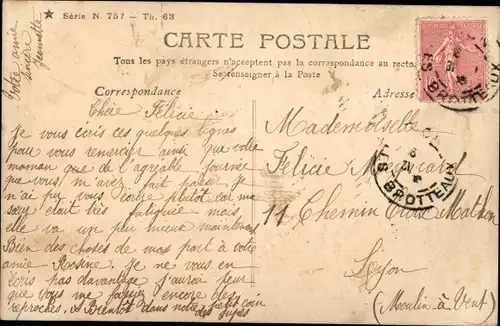 ★ Série N. 757 - Th. 63
CARTE POSTALE
Tous les pays étrangers n'acceptent pas la correspondance au recto.
Se renseigner à la Poste
Correspondance
Adresse
Votre amie
sincère
Jeannette
Chère Félicie
Je vous écris ces quelques lignes
pour vous remercier ainsi que votre
maman que de l'agréable journée
que vous m'avez fait passé. Je
n'ai pu vous écrire plutôt car ma
sœur était très fatiguée mais
elle va un peu mieux maintenant
Bien des choses de ma part à votre
amie Rosine. Je ne vous en
écris pas davantage j'aurai peur
que vous me fassiez encore des
reproches. A Bientôt dans notre petit coin
des
Mademoiselle
Félicie
11 Chemin Croix Morlon
Lyon
(Moulin à Vent)
LES BROTTEAUX
LES BROTTEAUX